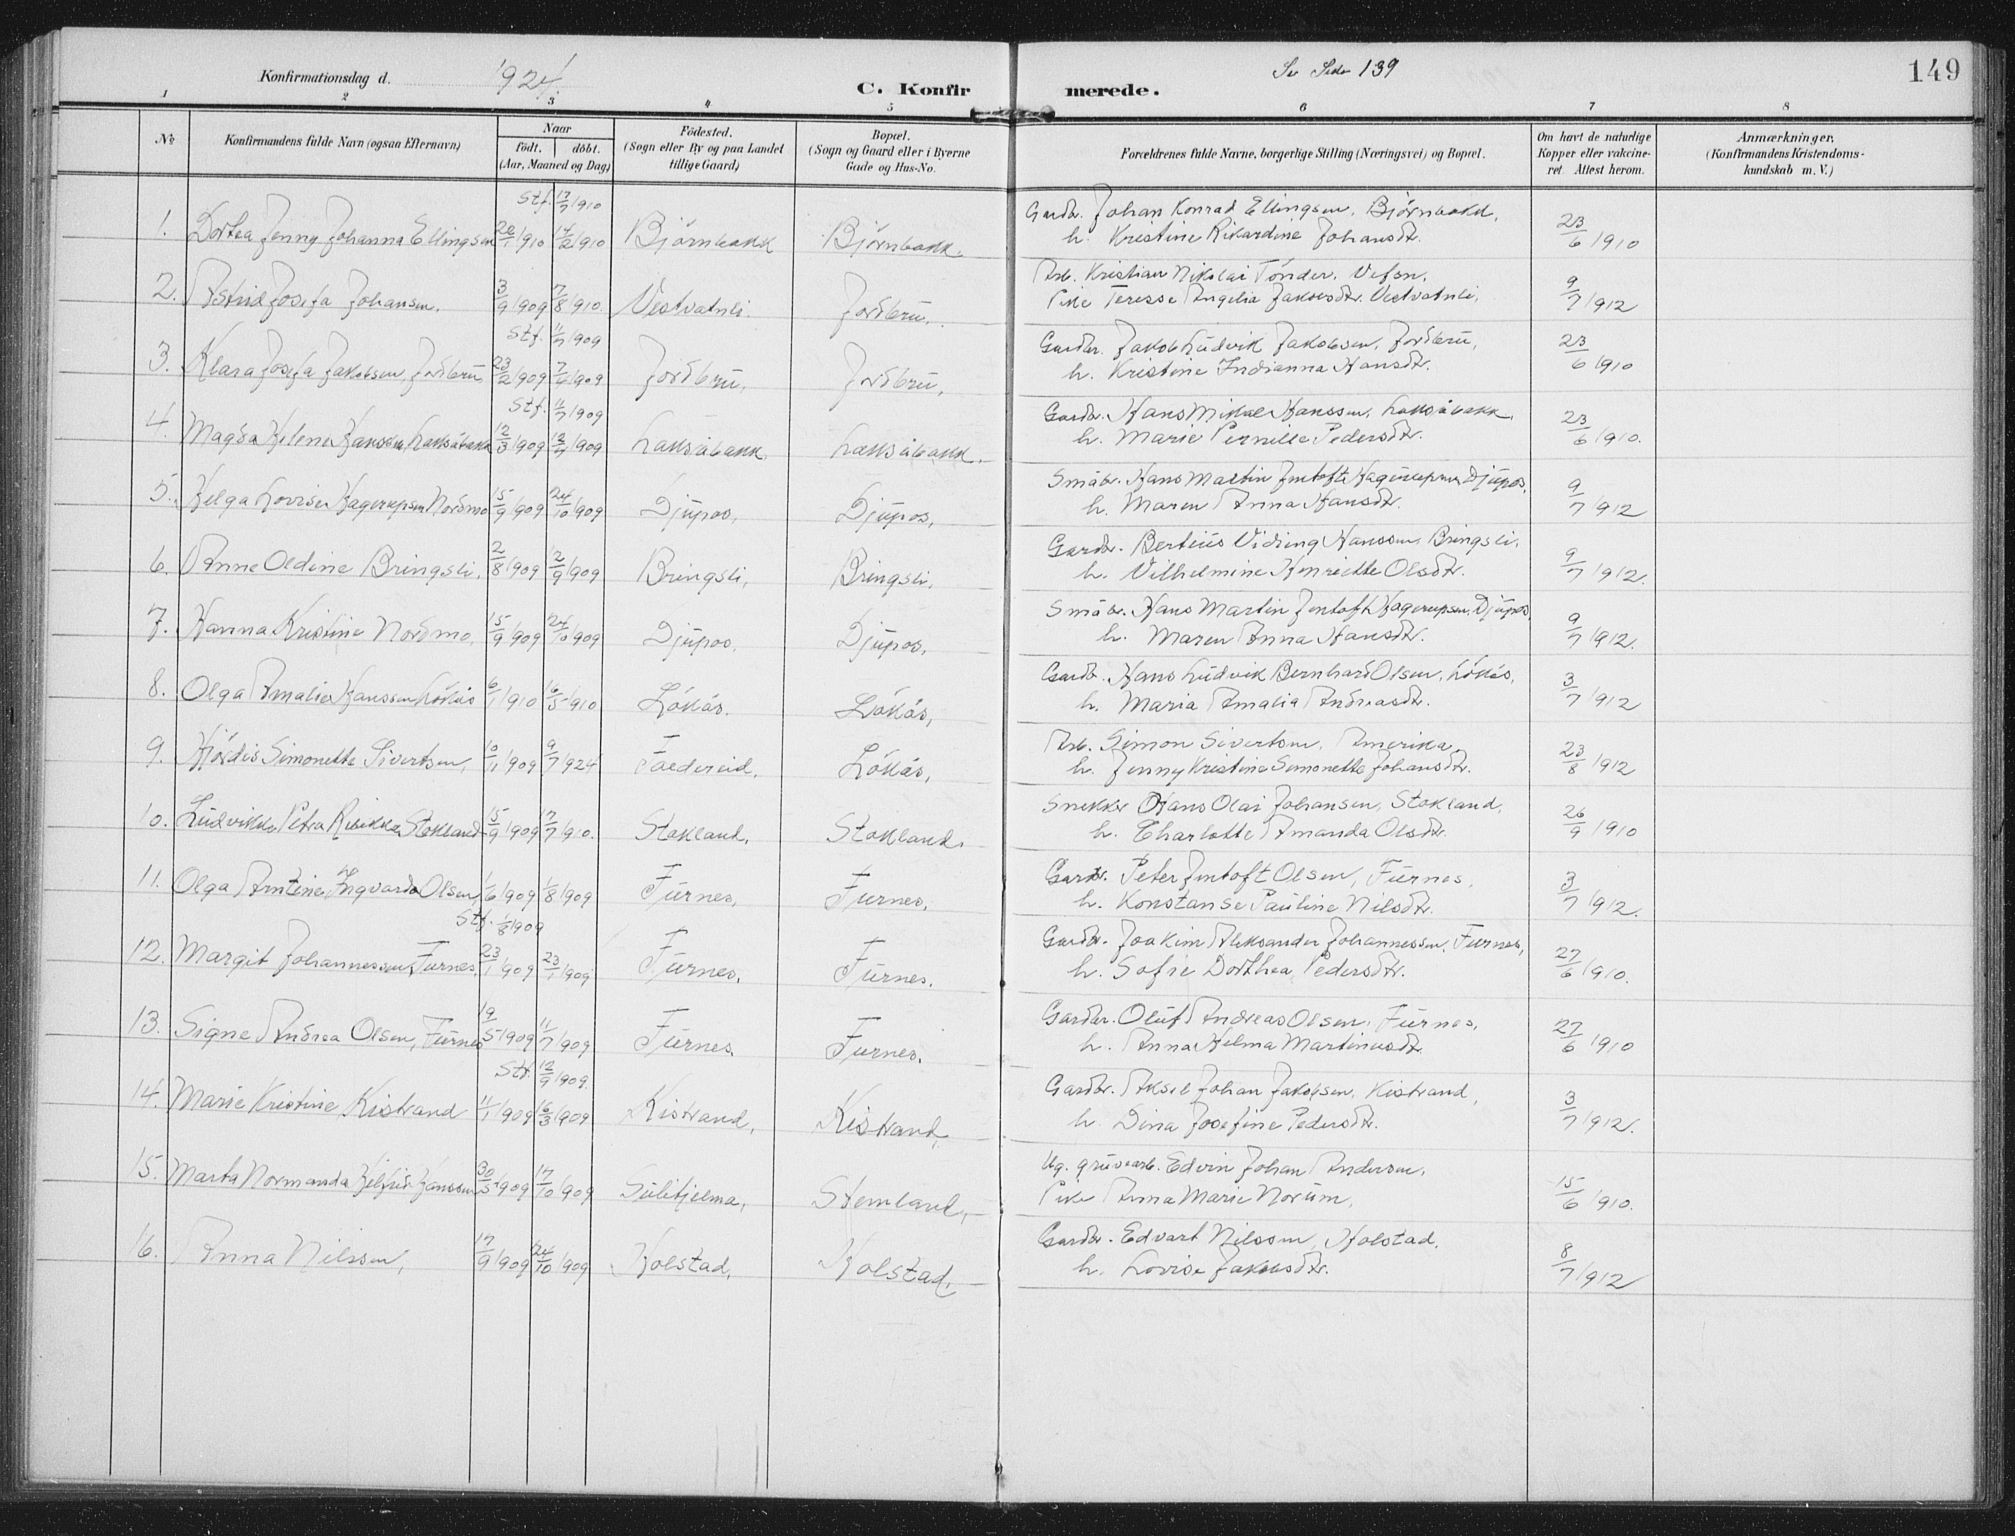 149
Konfirmationsdag d. 1924.
C. Konfirmerede.
Se Side 139
1 2 3 4 5 6 7 8
No Konfirmandens fulde Navn (ogsaa Efternavn) Naar födt. döbt. (Aar, Maaned og Dag) Födested. (Sogn eller By og paa Landet tillige Gaard) Bopæl. (Sogn og Gaard eller i Byerne Gade og Hus-No. Forældrenes fulde Navne, borgerlige Stilling (Næringsvei) og Bopæl. Om havt de naturlige Kopper eller vakcineret. Attest herom. Anmærkninger, (Konfirmandens Kristendomskundskab m. V.)
Stf. 17/7 1910
1. Dortea Jenny Johanna Ellingsen 20/1 1910 14/2 1910 Bjørnbakk Bjørnbakk. Gardbr. Johan Konrad Ellingsen, Bjørnbakk,
h. Kristine Rikardine Johansdtr. 23/6 1910
2. Astrid Josefa Johansen. 3/9 1909 7/8 1910. Vestvatnli. Jordbru. Arb. Kristian Nikolai Tönder, Vefsn,
Pike Teresse Angelia Jakobsdtr. Vestvatnli, 9/7 1912
Stf. 11/7 1909
3. Klara Josefa Jakobsen, Jordbru, 23/2 1909 7/4 1909 Jordbru. Jordbru, Gardbr. Jakob Ludvik Jakobsen, Jordbru,
h. Kristine Indianna Hansdtr. 23/6 1910
Stf. 11/7 1909
4. Magda Helene Hanssen, Laksåbakk 12/3 1909 12/4 1909 Laksåbakk, Laksåbakk. Gardbr. Hans Mikal Hanssen, Laksåbakk,
h. Marie Pernille Pedersdtr. 23/6 1910.
5. Helga Lovise Hagerupsen Nordmo 15/9 1909 24/10 1909 Djupos, Djupos, Småbr. Hans Martin Jentoft Hagerupsen, Djupos,
h. Maren Anna Hansdtr. 9/7 1912
6. Anne Oldine Bringsli, 2/8 1909 12/9 1909 Bringsli, Bringsli. Gardbr. Berteus Viding Hanssen, Bringsli,
h. Vilhelmine Henriette Olsdtr. 9/7 1912.
7. Hanna Kristine Nordmo, 15/9 1909 24/10 1909 Djupos, Djupos, Småbr. Hans Martin Jentoft Hagerupsen, Djupos,
h. Maren Anna Hansdtr. 9/7 1912.
8. Olga Amalie Hanssen Lökås 6/1 1910 16/5 1910 Lökås. Lökås, Gardbr. Hans Ludvik Bernhard Olsen, Lökås,
h. Maria Amalia Andreasdtr. 3/7 1912
9. Hjördis Simonette Sivertsen, 10/11 1909 9/7 1924 Foedereid, Lökås, Arb. Simon Sivertsen, Amerika,
h. Jenny Kristine Simonette Johansdtr. 23/8 1912
10. Ludvikke Petra Rikikka Stokland 15/9 1909 17/7 1910. Stokland, Stokland. Snekker Hans Olai Johansen, Stokland,
h. Charlotte Amanda Olsdtr. 26/9 1910
11. Olga Antine Ingvarda Olsen, 1/6 1909 1/8 1909 Furnes, Furnes, Gardbr. Peter Jentoft Olsen, Furnes,
h. Konstanse Pauline Nilsdtr. 3/7 1912.
Stf. 1/8 1909
12. Margit Johannessen, Furnes, 23/1 1909 23/1 1909 Furnes, Furnes. Gardbr. Joakim Aleksander Johannessen, Furnes,
h. Sofie Dorthea Pedersdtr. 27/6 1910.
13. Signe Andrea Olsen, Furnes 19/5 1909 11/7 1909 Furnes. Furnes. Gardbr. Oluf Andreas Olsen, Furnes,
h. Anna Helma Martinusdtr 27/6 1910
Stf. 12/9 1909.
14. Marie Kristine Kistrand 11/1 1909 16/3 1909 Kistrand, Kistrand, Gardbr. Aksel Johan Jakobsen, Kistrand,
h. Dina Josefine Pedersdtr. 3/7 1912.
15. Marta Normanda Helfrid Hanssen 30/5 1909 17/10 1909 Sulitjelma, Stemland, Ug. gruvearb. Edvin Johan Andersen,
Pike Anna Marie Norum, 15/6 1910.
16. Anna Nilssen, 17/9 1909 24/10 1909 Holstad, Holstad, Gardbr. Edvart Nilssen, Holstad,
h. Lovise Jakobsdtr. 8/7 1912